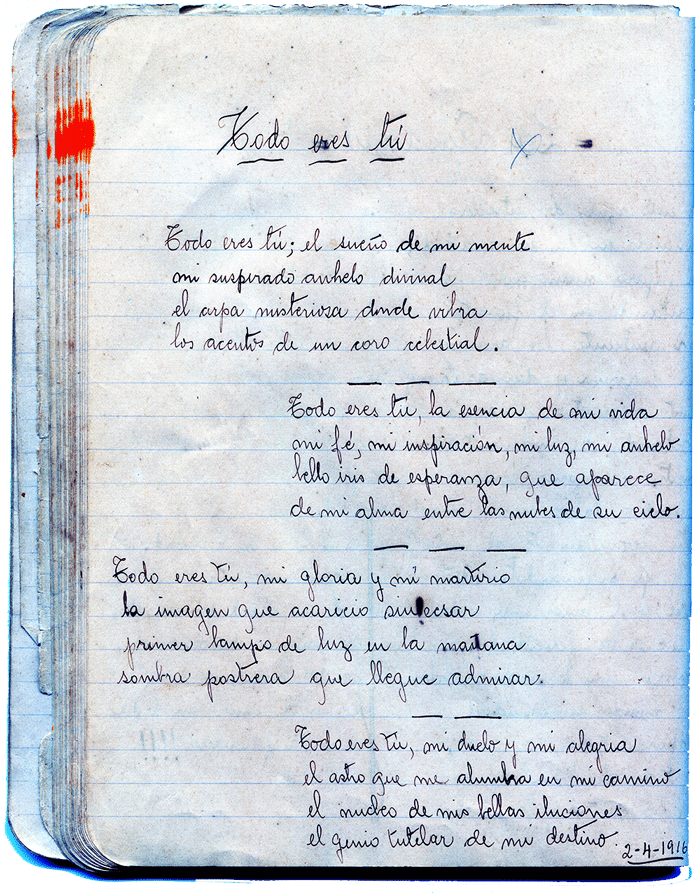 Todo eres tú
Todo eres tú; el sueño de mi mente
mi suspirado anhelo divinal
el arpa misteriosa donde vibra
los acentos de un coro celestial.
Todo eres tú, la esencia de mi vida
mi fé, mi inspiración, mi luz, mi anhelo
bello iris de esperanza, que aparece
de mi alma entre las nubes de su cielo.
Todo eres tú, mi gloria y mi martirio
la imagen que acaricio sin cecsar
primer lampo de luz en la mañana
sombra postrera que llegue admirar.
Todo eres tú, mi duelo y mi alegria
el astro que me alumbra en mi camino
el nucleo de mis bellas iluciones
el genio tutelar de mi destino.
2-4-1916